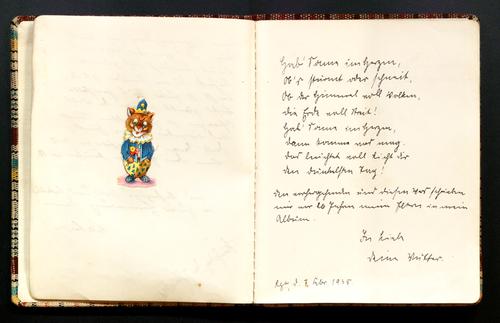 Hab' Sonne im Herzen,
Ob's stürmt oder schneit,
Ob der Himmel voll Wolken,
die Erde voll Streit!
Hab' Sonne im Herzen,
dann komme was mag.
Das leuchtet voll Licht dir
den dunkelsten Tag!
Den vorhergehenden und diesen Vers schrieben
mir vor 20 Jahren meine Eltern in mein
Album.
In Liebe
Deine Mutter.
d. 7. Febr. 1938.